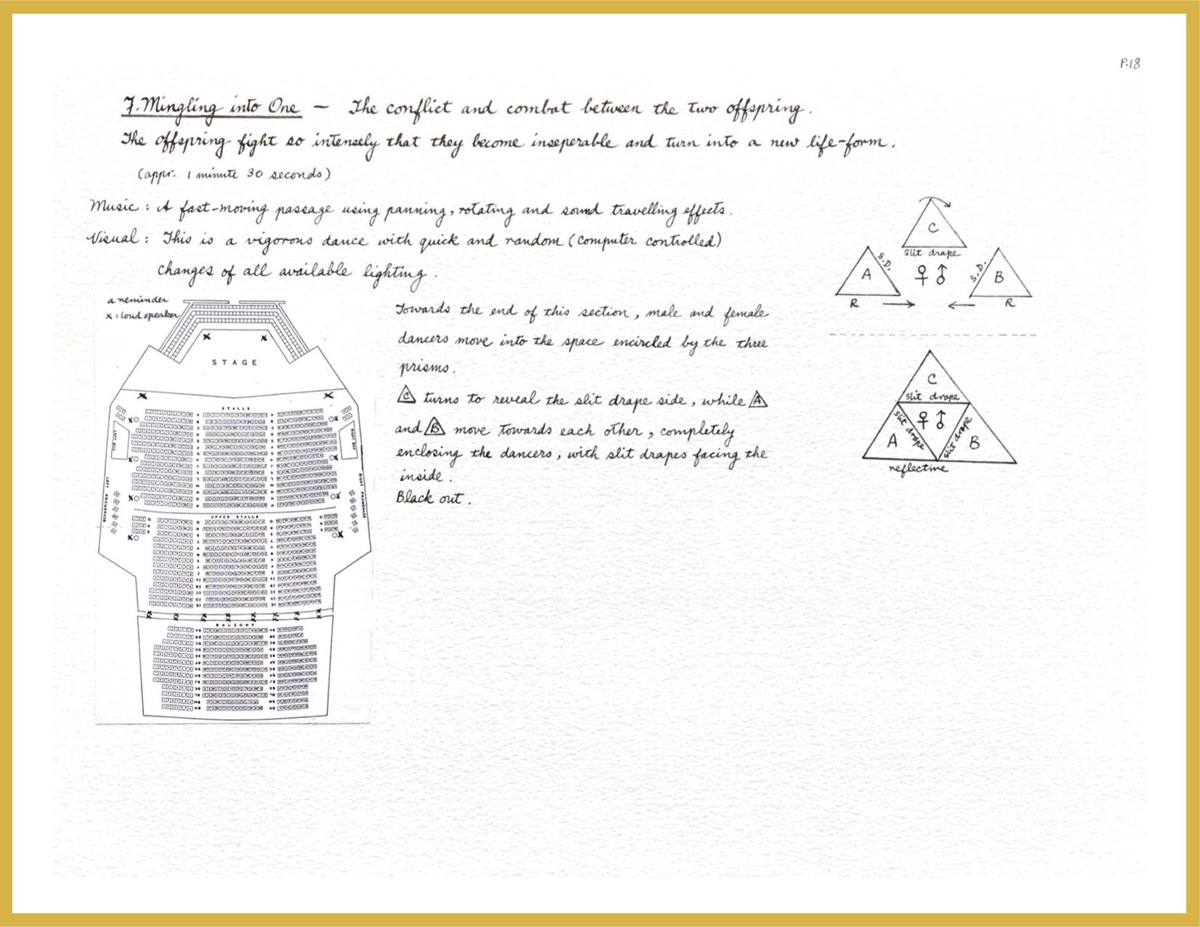 P.18
7. Mingling into One — The conflict and combat between the two offspring.
The offspring fight so intensely that they become inseperable and turn into a new life-form.
(appr. 1 minute 30 seconds)
Music: A fast-moving passage using panning, rotating and sound travelling effects.
Visual: This is a vigorous dance with quick and random (computer controlled)
changes of all available lighting.
a reminder
x = loud speaker
STAGE
STALLS
UPPER STALLS
BALCONY
Towards the end of this section, male and female
dancers move into the space encircled by the three
prisms.
C turns to reveal the slit drape side, while A
and B move towards each other, completely
enclosing the dancers, with slit drapes facing the
inside.
Black out.
C
slit drape
A S.D. ♀ ♂ S.D. B
R → ← R
C
slit drape
A slit drape ♀ ♂ slit drape B
reflective